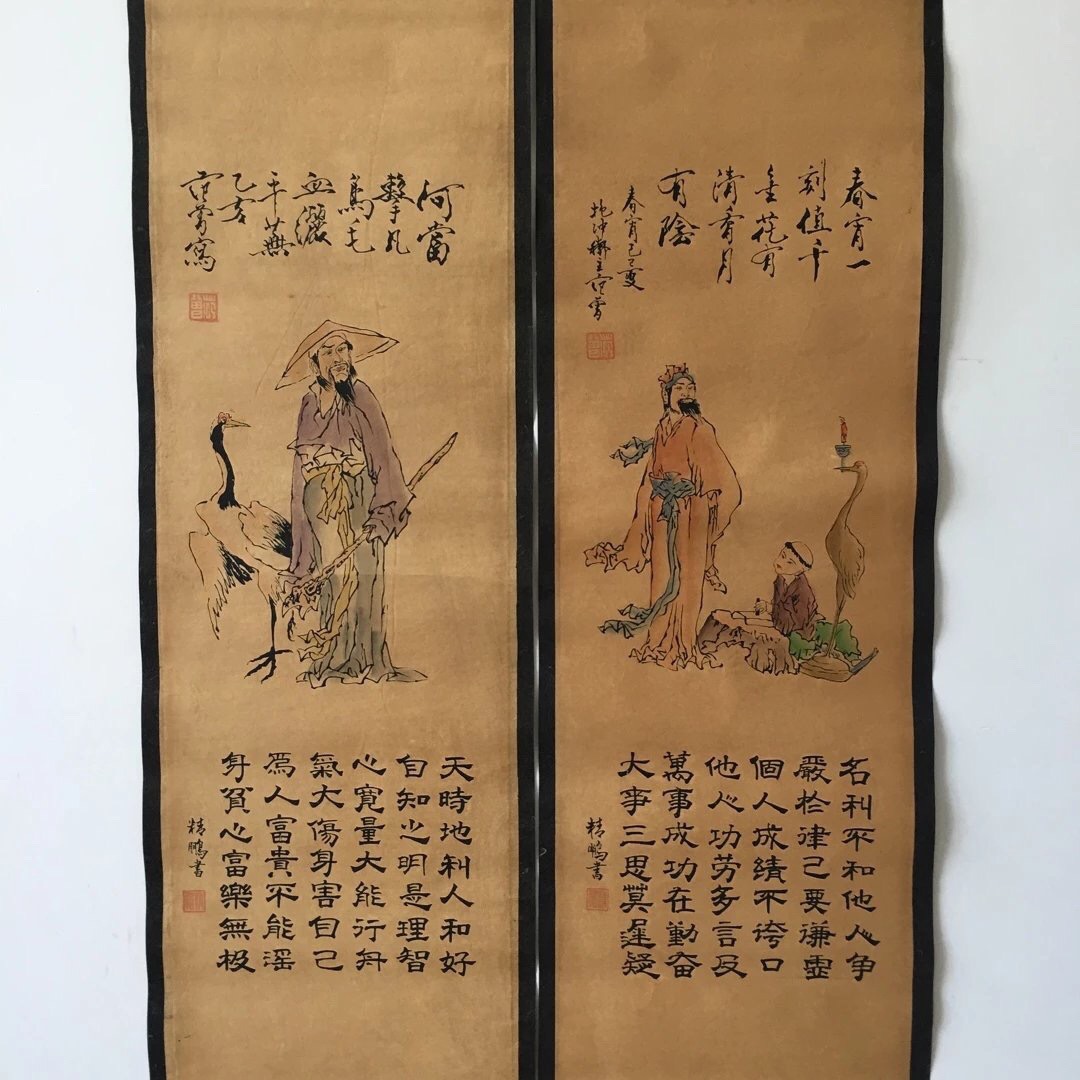 春宵一
刻值千
金花有
清香月
有陰
春宵己巳夏
抱冲齋主范曾
名利不和他人争
嚴於律己要谦虚
個人成績不誇口
他人功劳多言及
萬事成功在勤奋
大事三思莫遲疑
精鵬書
何當
擊凡
鳥毛
血灑
平蕪
乙亥
范曾寫
天時地利人和好
自知之明是理智
心寬量大能行舟
氣大傷身害自己
爲人富貴不能淫
身貧心富樂無极
精鵬書